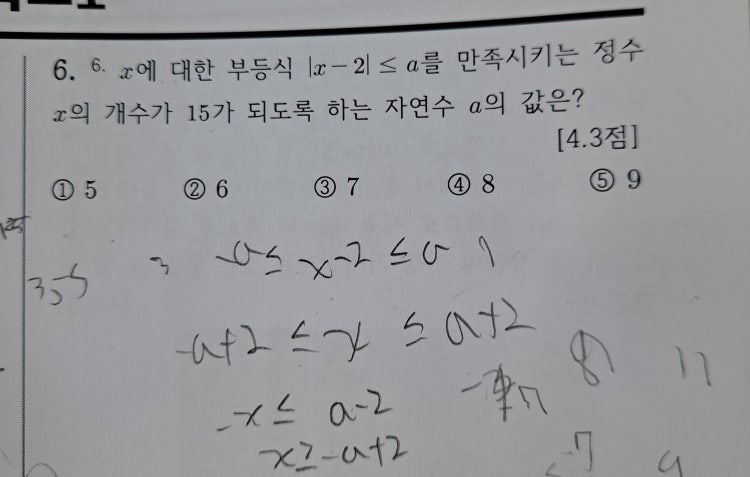 6. 6. x에 대한 부등식 |x-2| ≤ a를 만족시키는 정수
x의 개수가 15가 되도록 하는 자연수 a의 값은?
[4.3점]
① 5 ② 6 ③ 7 ④ 8 ⑤ 9
-a ≤ x-2 ≤ a
-a+2 ≤ x ≤ a+2
-x ≤ a-2
x ≥ -a+2
-7
9